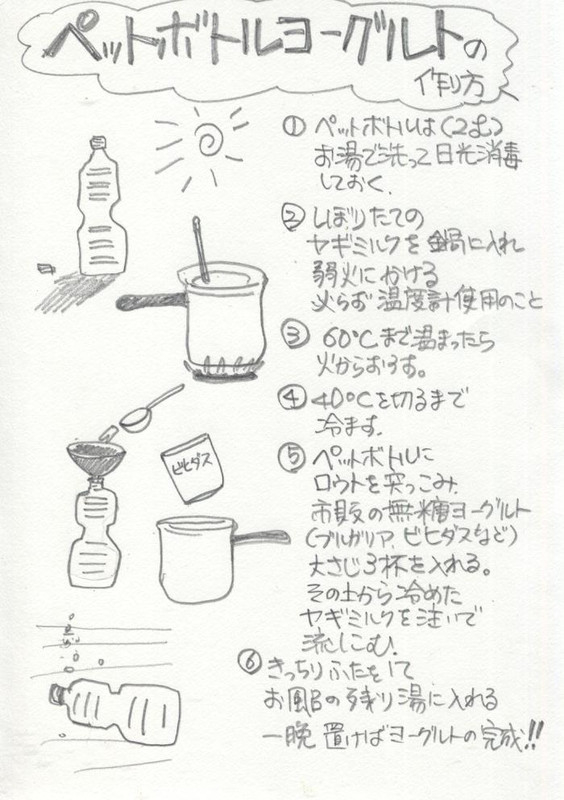 ペットボトルヨーグルトの
作り方
① ペットボトルは(2コ)
お湯で洗って日光消毒
しておく.
② しぼりたての
ヤギミルクを鍋に入れ
弱火にかける
必らず温度計使用のこと
③ 60℃まで温まったら
火からおろす。
④ 40℃を切るまで
冷ます.
⑤ ペットボトルに
ロウトを突っこみ.
市販の無糖ヨーグルト
(ブルガリア、ビヒダスなど)
大さじ3杯を入れる。
その上から冷めた
ヤギミルクを注いで
流しこむ.
ビヒダス
⑥ きっちりふたをして
お風呂の残り湯に入れる
一晩置けばヨーグルトの完成!!